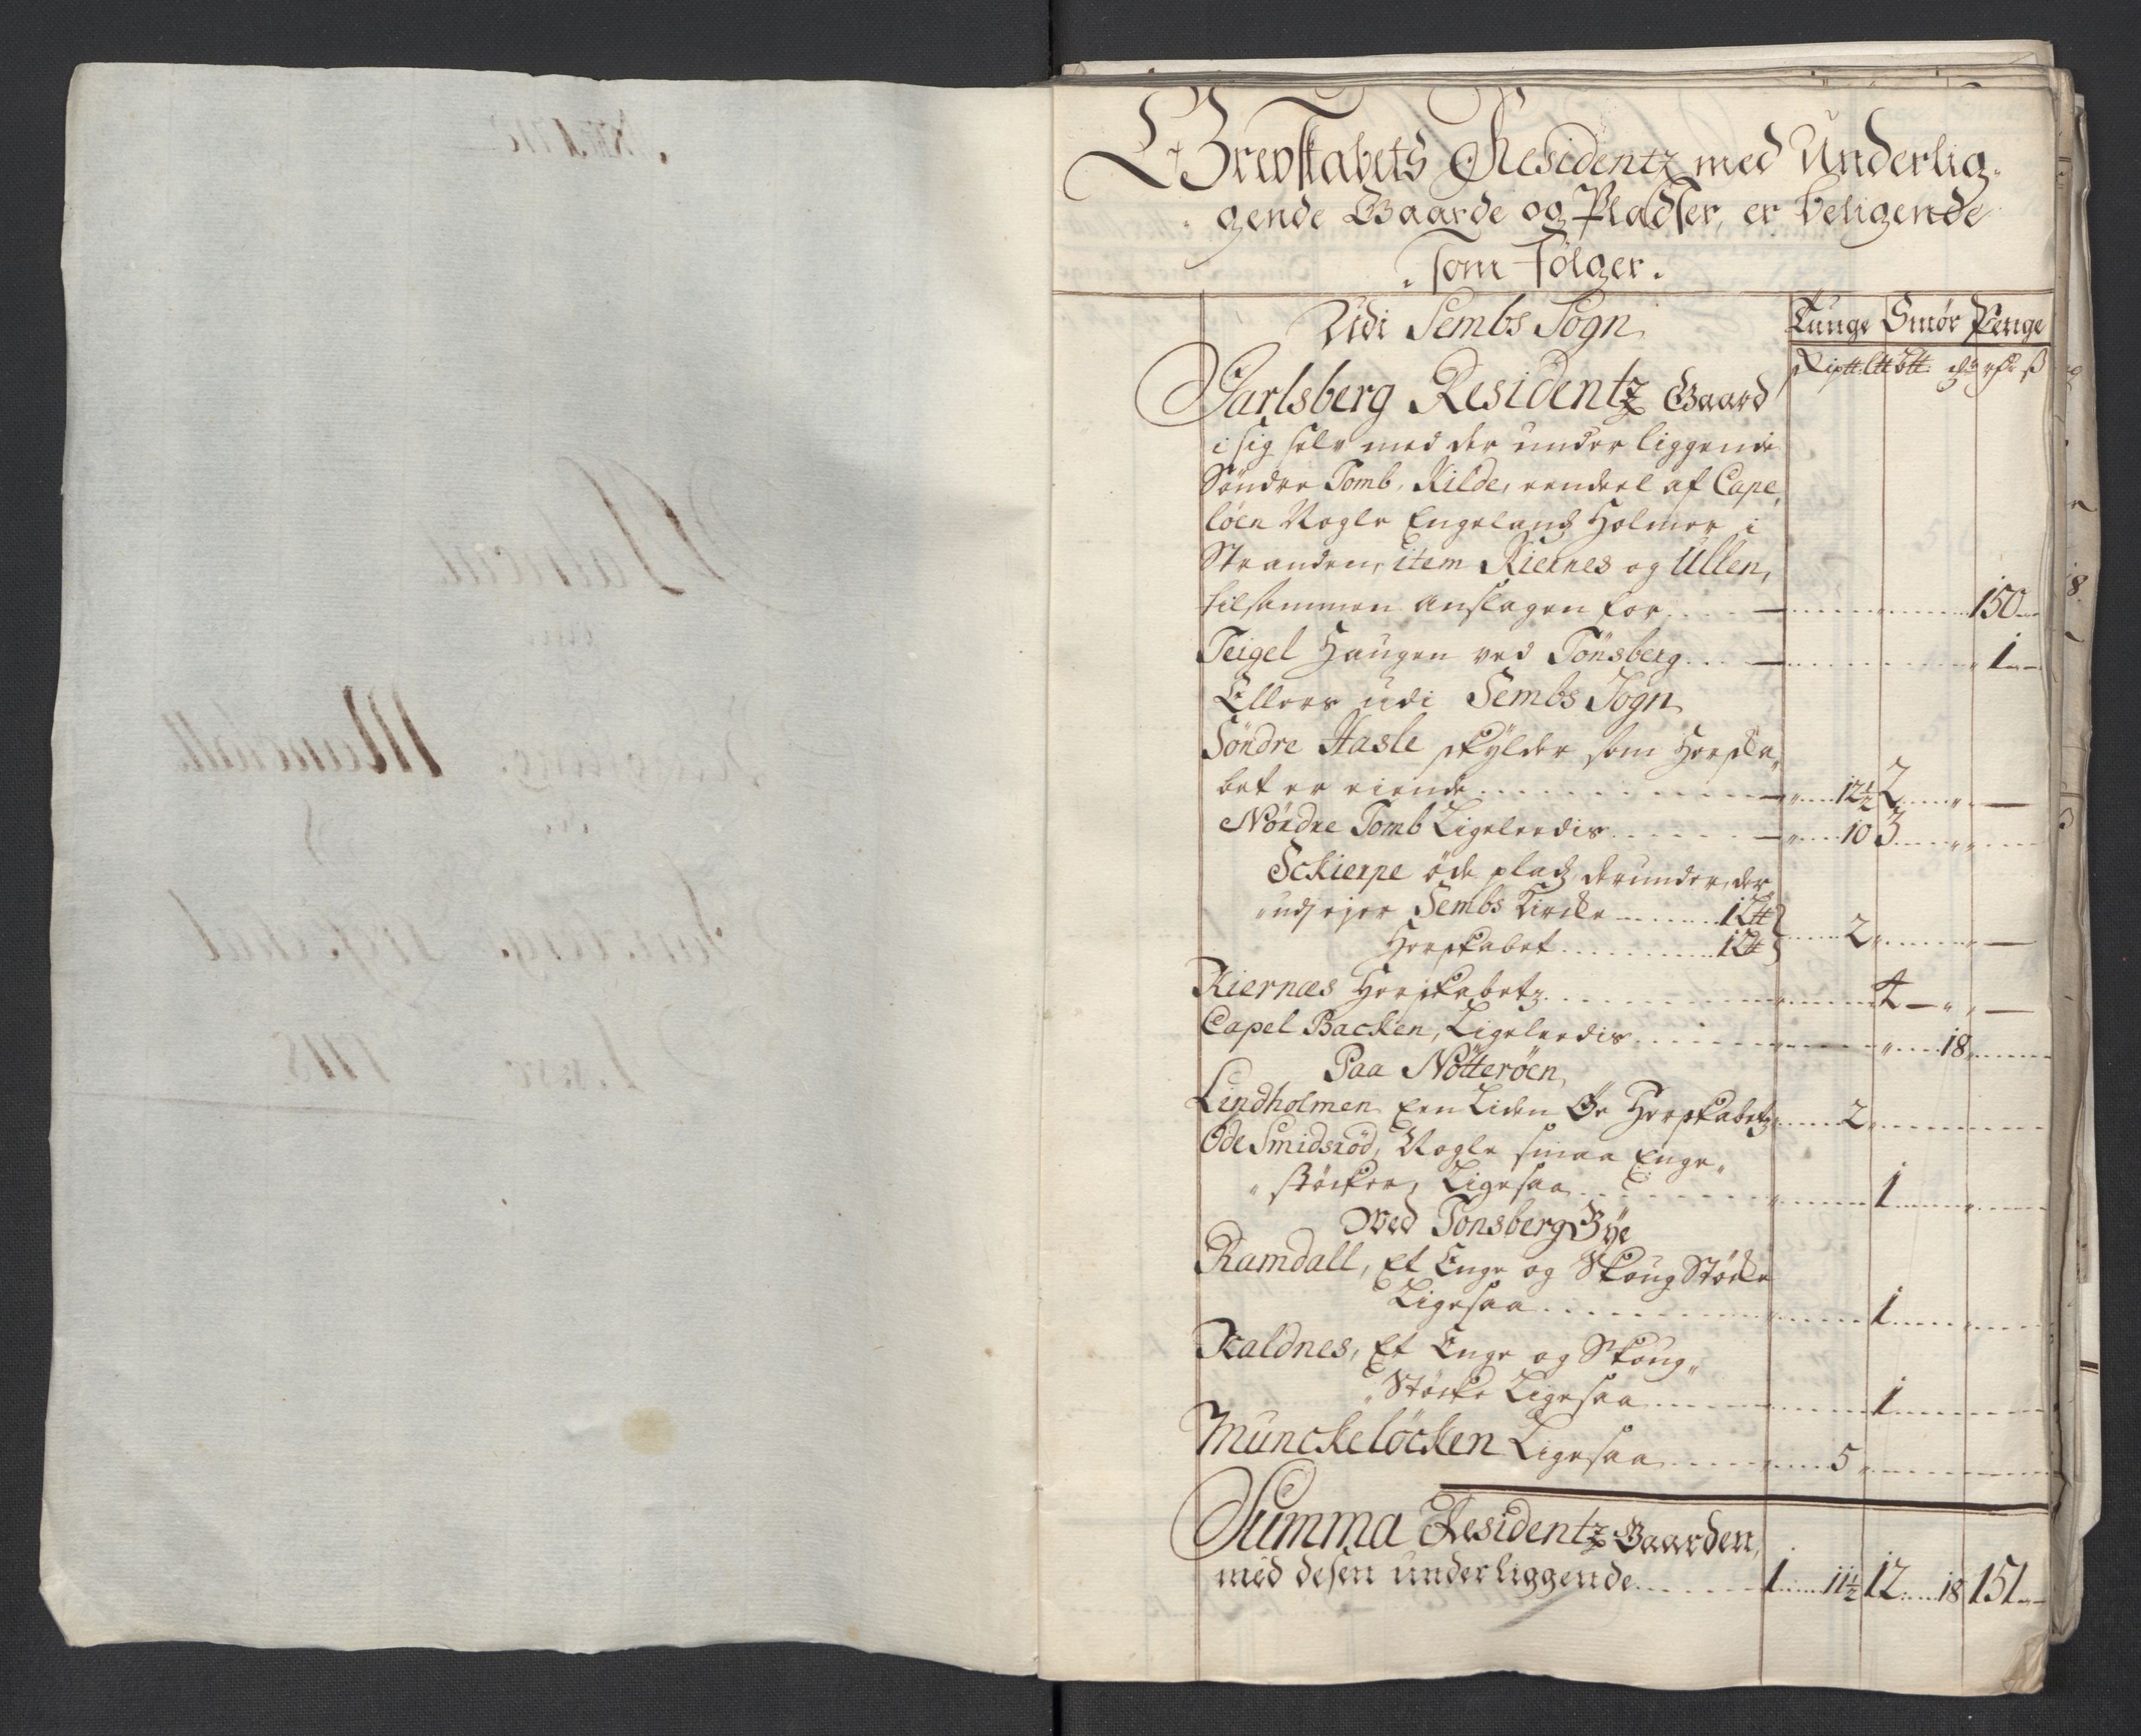 Grevskabets Residentz med Underlig-
gende Gaarde og Pladser, er beligende
som følger.
Udi Sembs Sogn
Tunge Smör Penge
Skip℔ L℔ B℔ ß
Jarlsberg Residentz Gaard
i sig selv med der under liggende
Söndre Tomb, Kilde, eendeel af Cape,
löen Nogle Engelandz Holmer i
Stranden, item Kiernes og Ullen,
tilsammen anslagen for 150
Teigel Haugen ved Tönsberg 1
Ellers udi Sembs Sogn
Söndre Hasle skylder som Herska,,
bet er eiende 12½ 2
Nördre Tomb Ligeleedis 10 3
Sckierpe öde pladz derunder, der
udj ejer Sembs Kircke 1 L℔
Herskabet 1 L℔ 2
Kiernæs Herskabetz 4
Capel Backen, Ligeleedis 18
Paa Nötteröen,
Lindholmen Een Liden Øe Herskabetz 2
Öde Smidsröd, Nogle smaa Enge,,
,, stöcker, Ligesaa 1
Ved Tonsberg Bÿe
Ramdall, Et Enge og Skoug Stöcke
Ligesaa 1
Kaldnes, Et Enge og Skoug,,
,, Stöcke Ligesaa 1
Munckelöcken Ligesaa 5
Summa Residentz Gaarden,
med desen underliggende 1 11½ 12 18 151